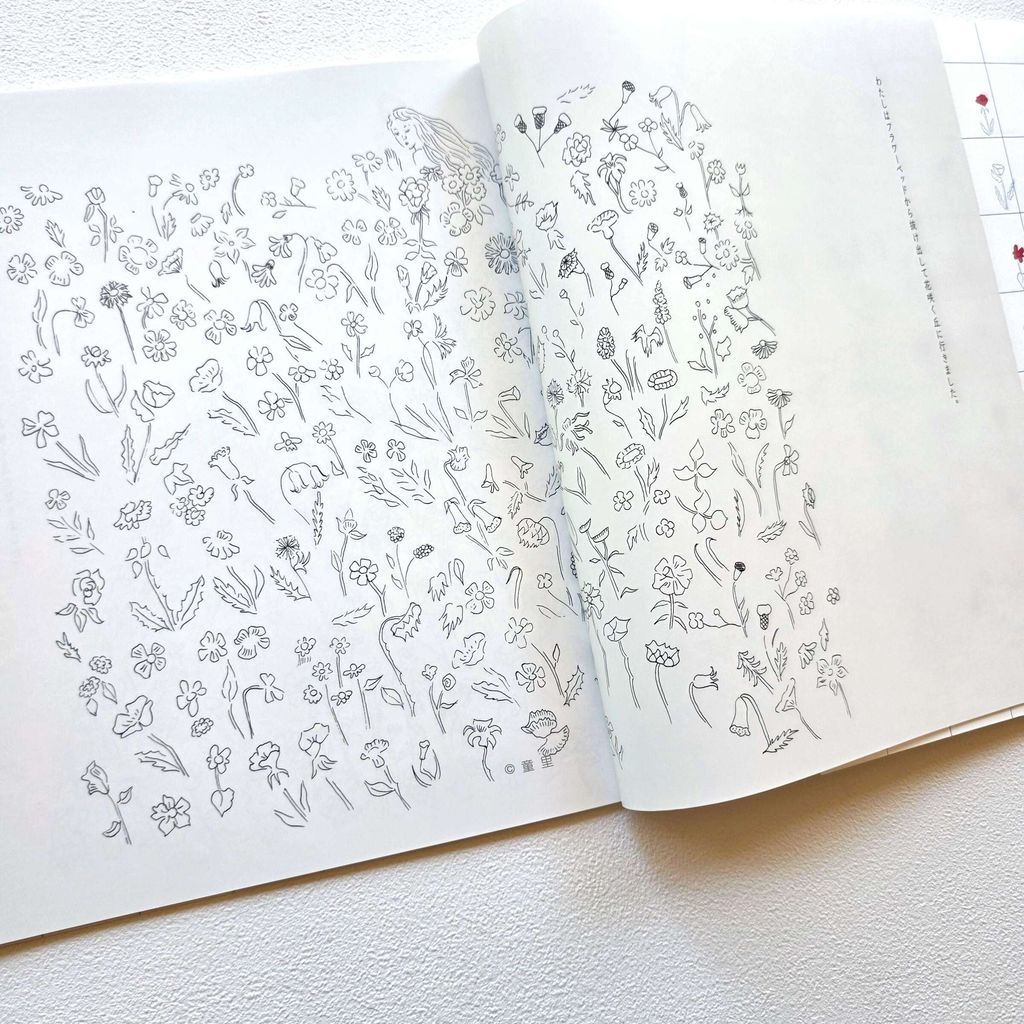 わたしはフラワーベッドから抜け出して花咲く丘に行きました。
© 童里